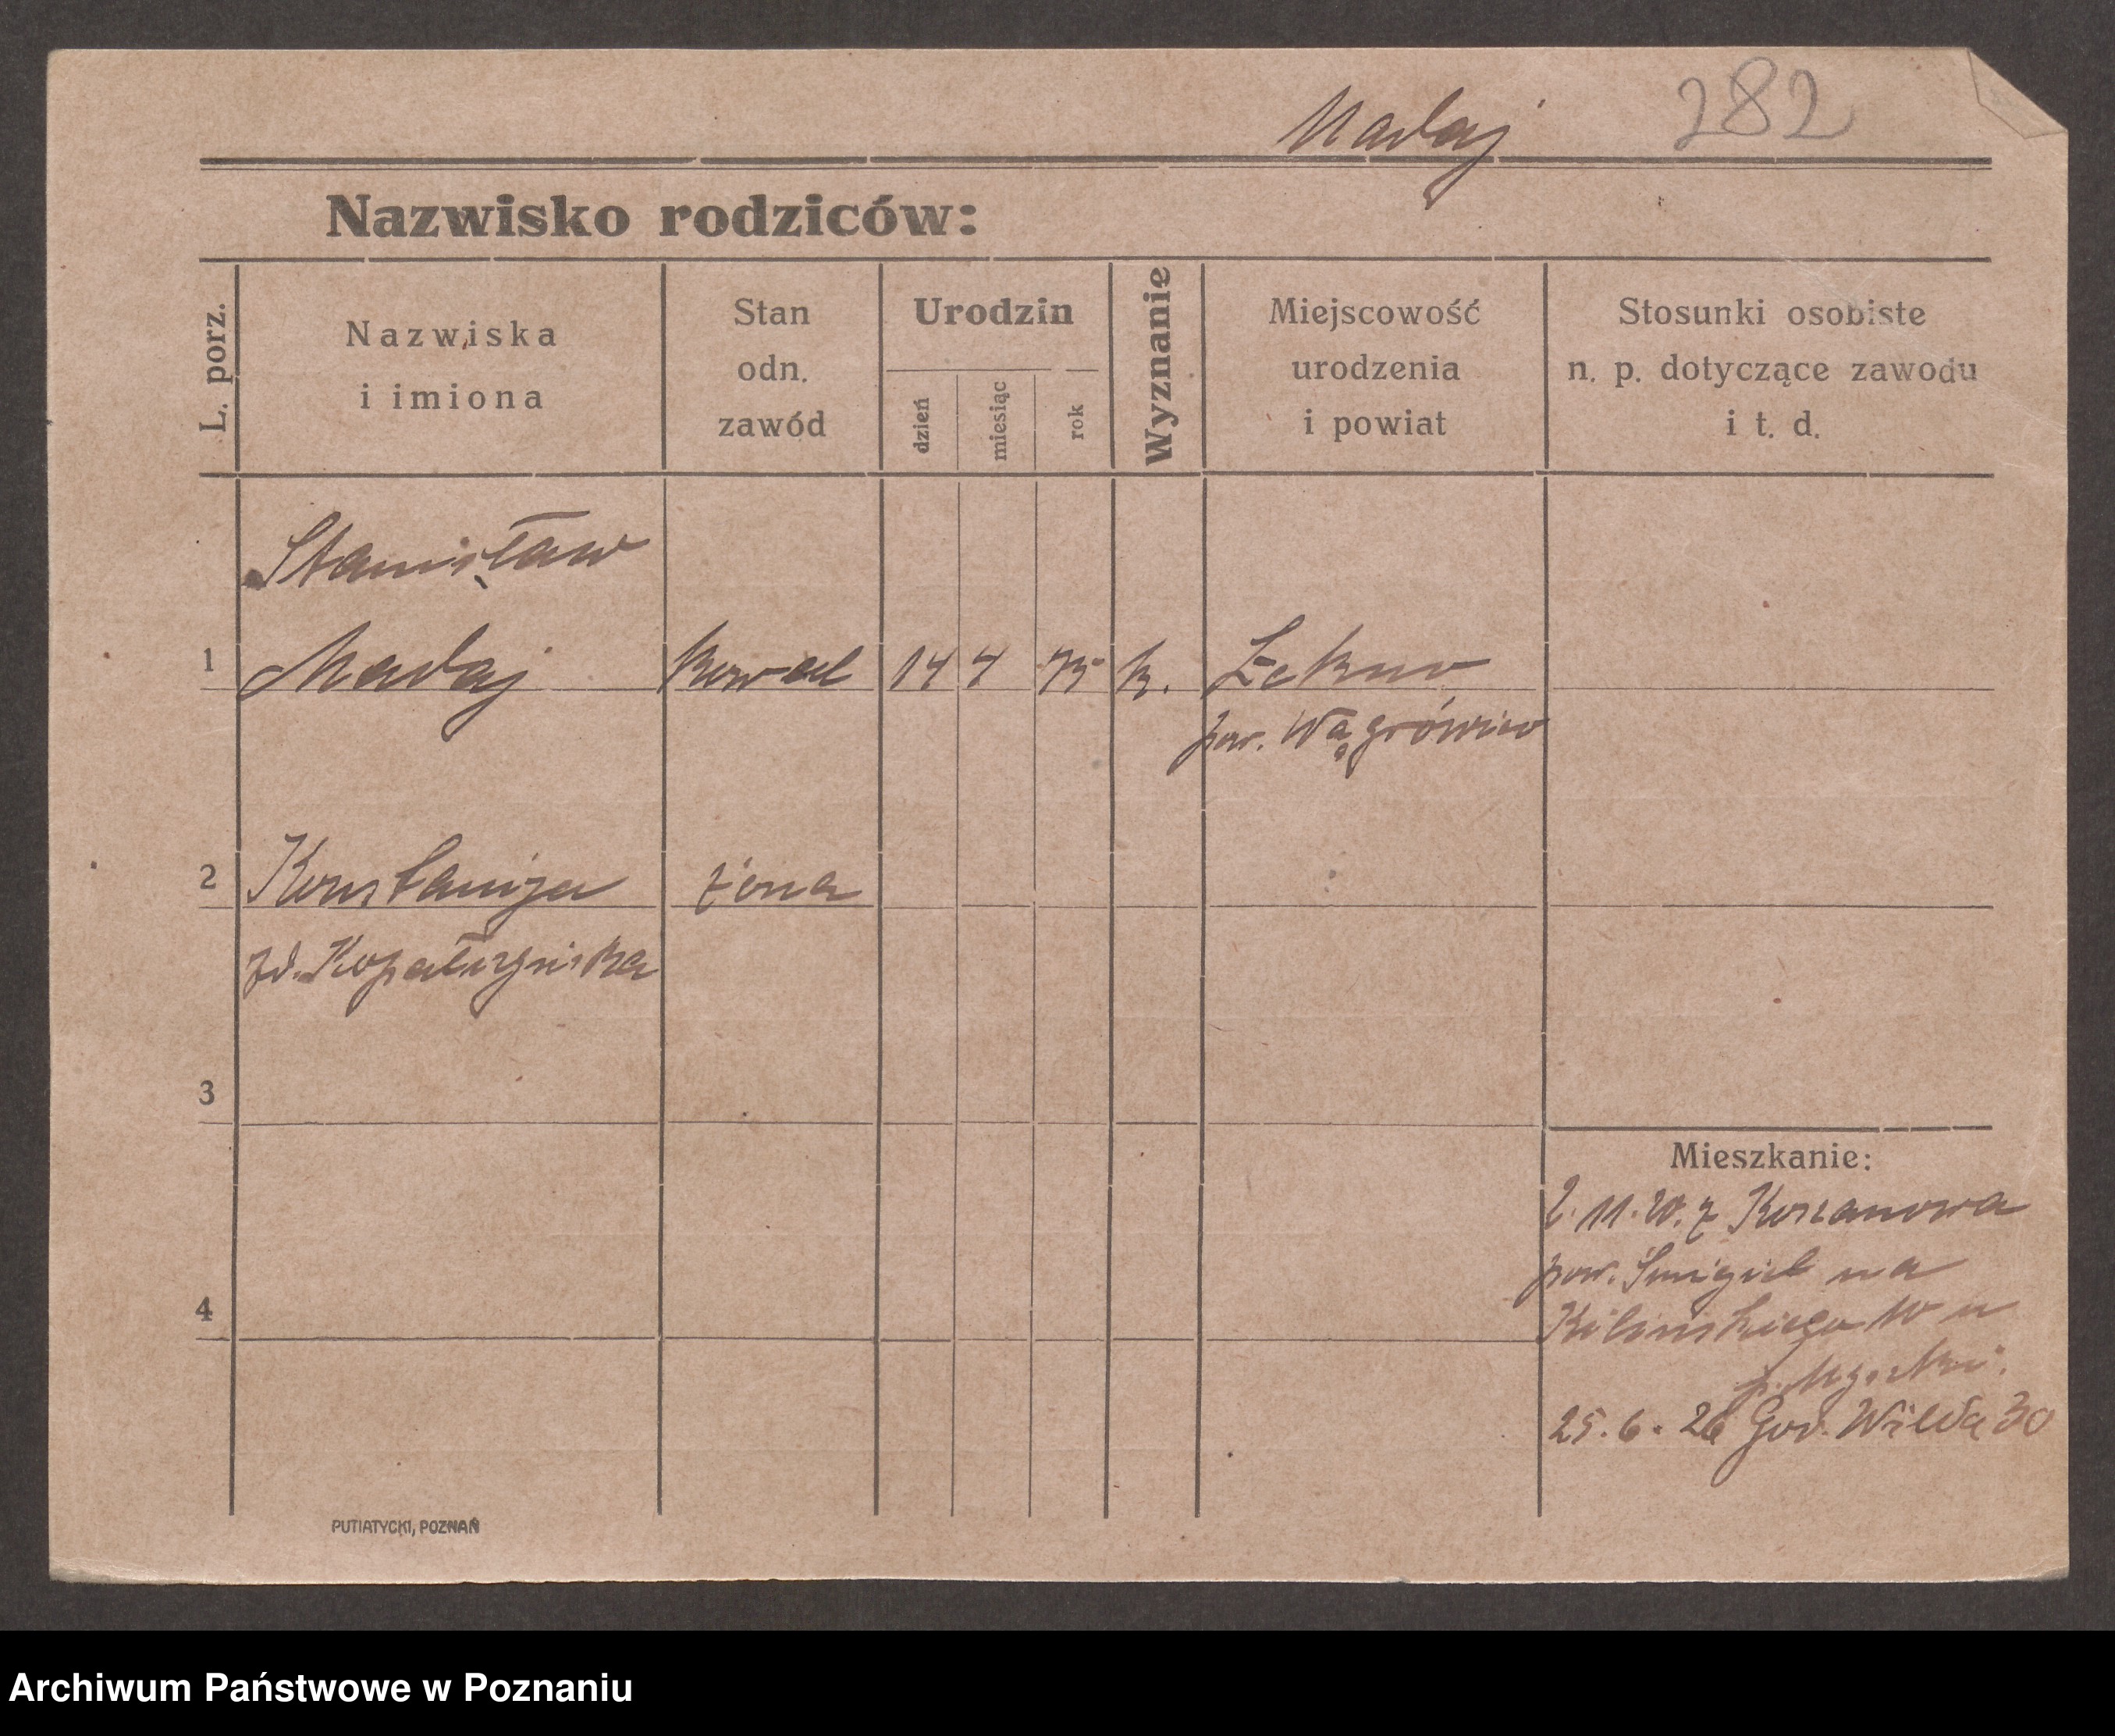 Madaj 282
Nazwisko rodziców:
L. porz.
Nazwiska
i imiona
Stan
odn.
zawód
Urodzin
dzień
miesiąc
rok
Wyznanie
Miejscowość
urodzenia
i powiat
Stosunki osobiste
n. p. dotyczące zawodu
i t. d.
Stanisław
1 Madaj kowal 14 4 75 k. Łekno
pow. Wągrówiec
2 Konstancja żona
zd.
3
Mieszkanie:
2.11.20. z
pow. Śmigiel na
4 Kilińskiego 10 u
25.6.26 Gór. Wilda 30
PUTIATYCKI, POZNAŃ
Archiwum Państwowe w Poznaniu